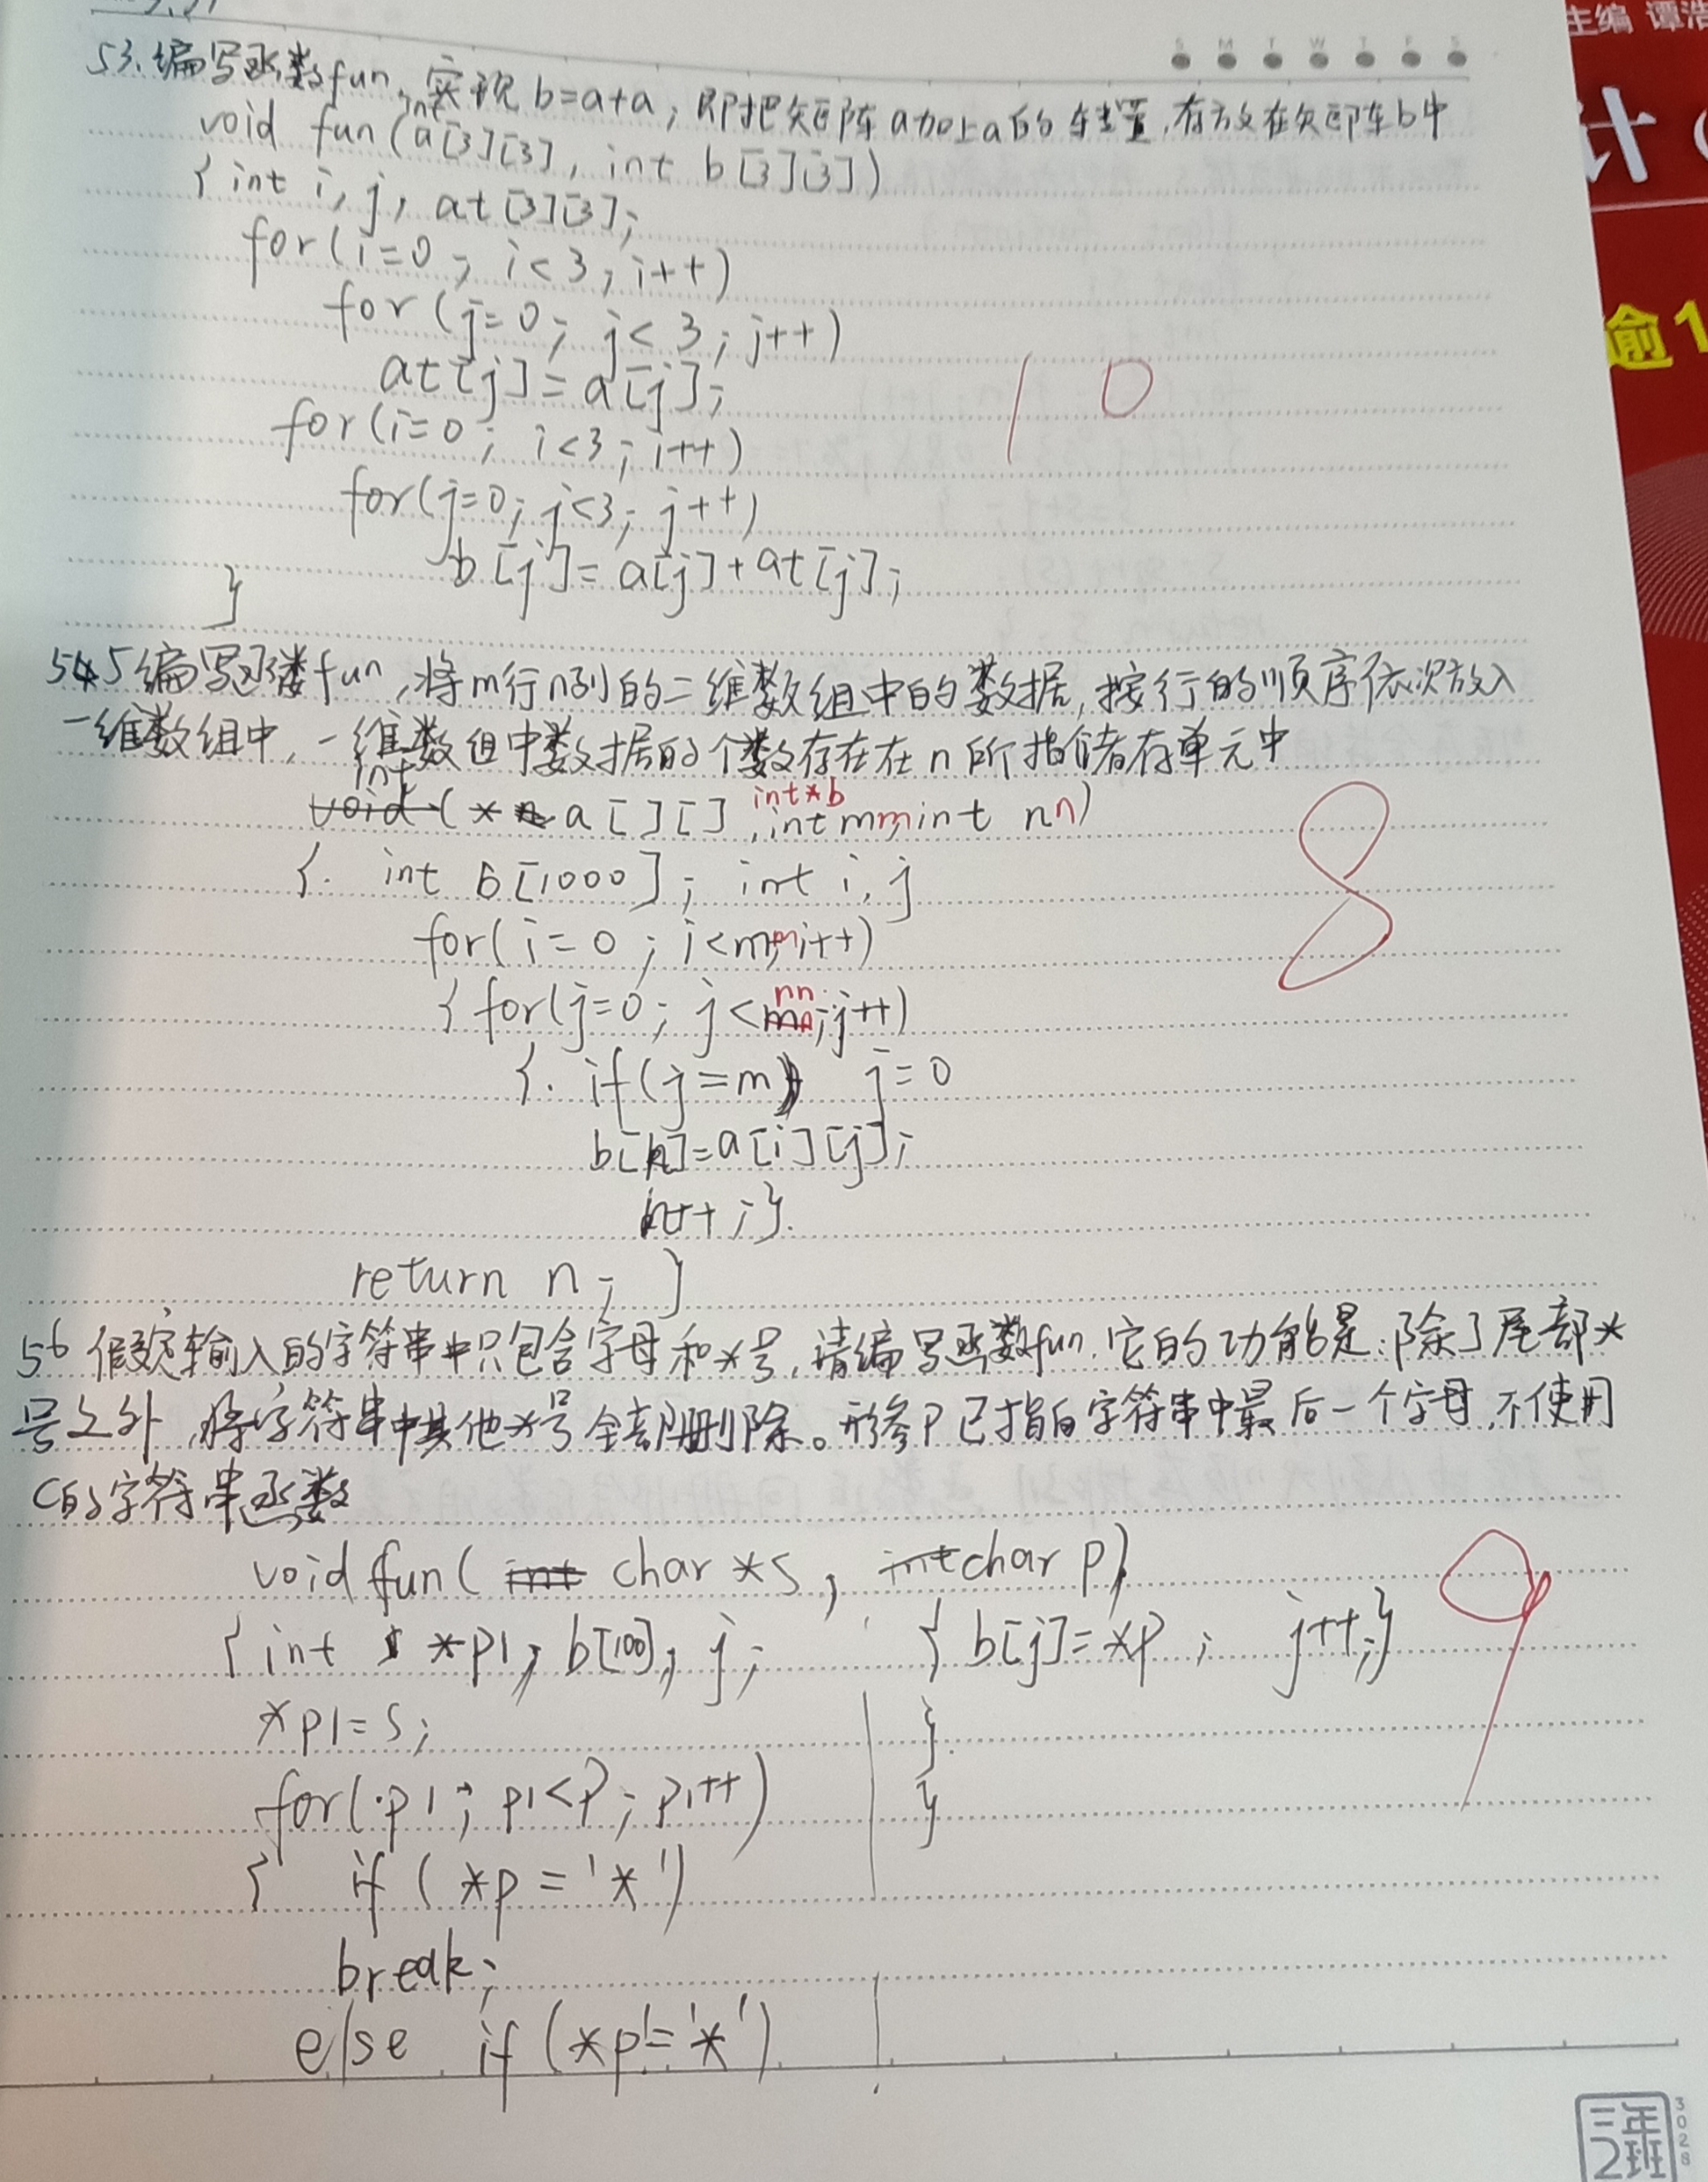 主编 谭浩
计
俞1
S M T W T F S
53.编写函数fun,实现b=a+a,即把矩阵a加上a的转置,存放在矩阵b中
void fun(int a[3][3], int b[3][3])
{int i, j, at[3][3];
for(i=0; i<3; i++)
for(j=0; j<3; j++)
at[j]=a[j];
for(i=0; i<3; i++)
for(j=0; j<3; j++)
b[j]=a[j]+at[j];
}
10
编写函数fun,将m行n列的二维数组中的数据,按行的顺序依次放入
一维数组中,一维数组中数据的个数存在在n所指储存单元中
int
void(* a[][], int*b, int mm, int nn)
{. int b[1000]; int i, j
for(i=0; i<mm; i++)
{for(j=0; j<nn; j++)
{. if(j=m) j=0
b[n]=a[i][j];
n++;}
return n; }
8
56 假定输入的字符串中只包含字母和*号,请编写函数fun.它的功能是:除了尾部*
号之外,将字符串中其他*号全部删除。形参P已指向字符串中最后一个字母,不使用
C的字符串函数
void fun( int char *s, int char p)
{int *p1, b[100], j;
*p1=s;
for(p1; p1<p; p1++)
{ if(*p='*')
break;
else if(*p!='*')
{b[j]=*p; j++;}
}
}
9
三年
2班
3028